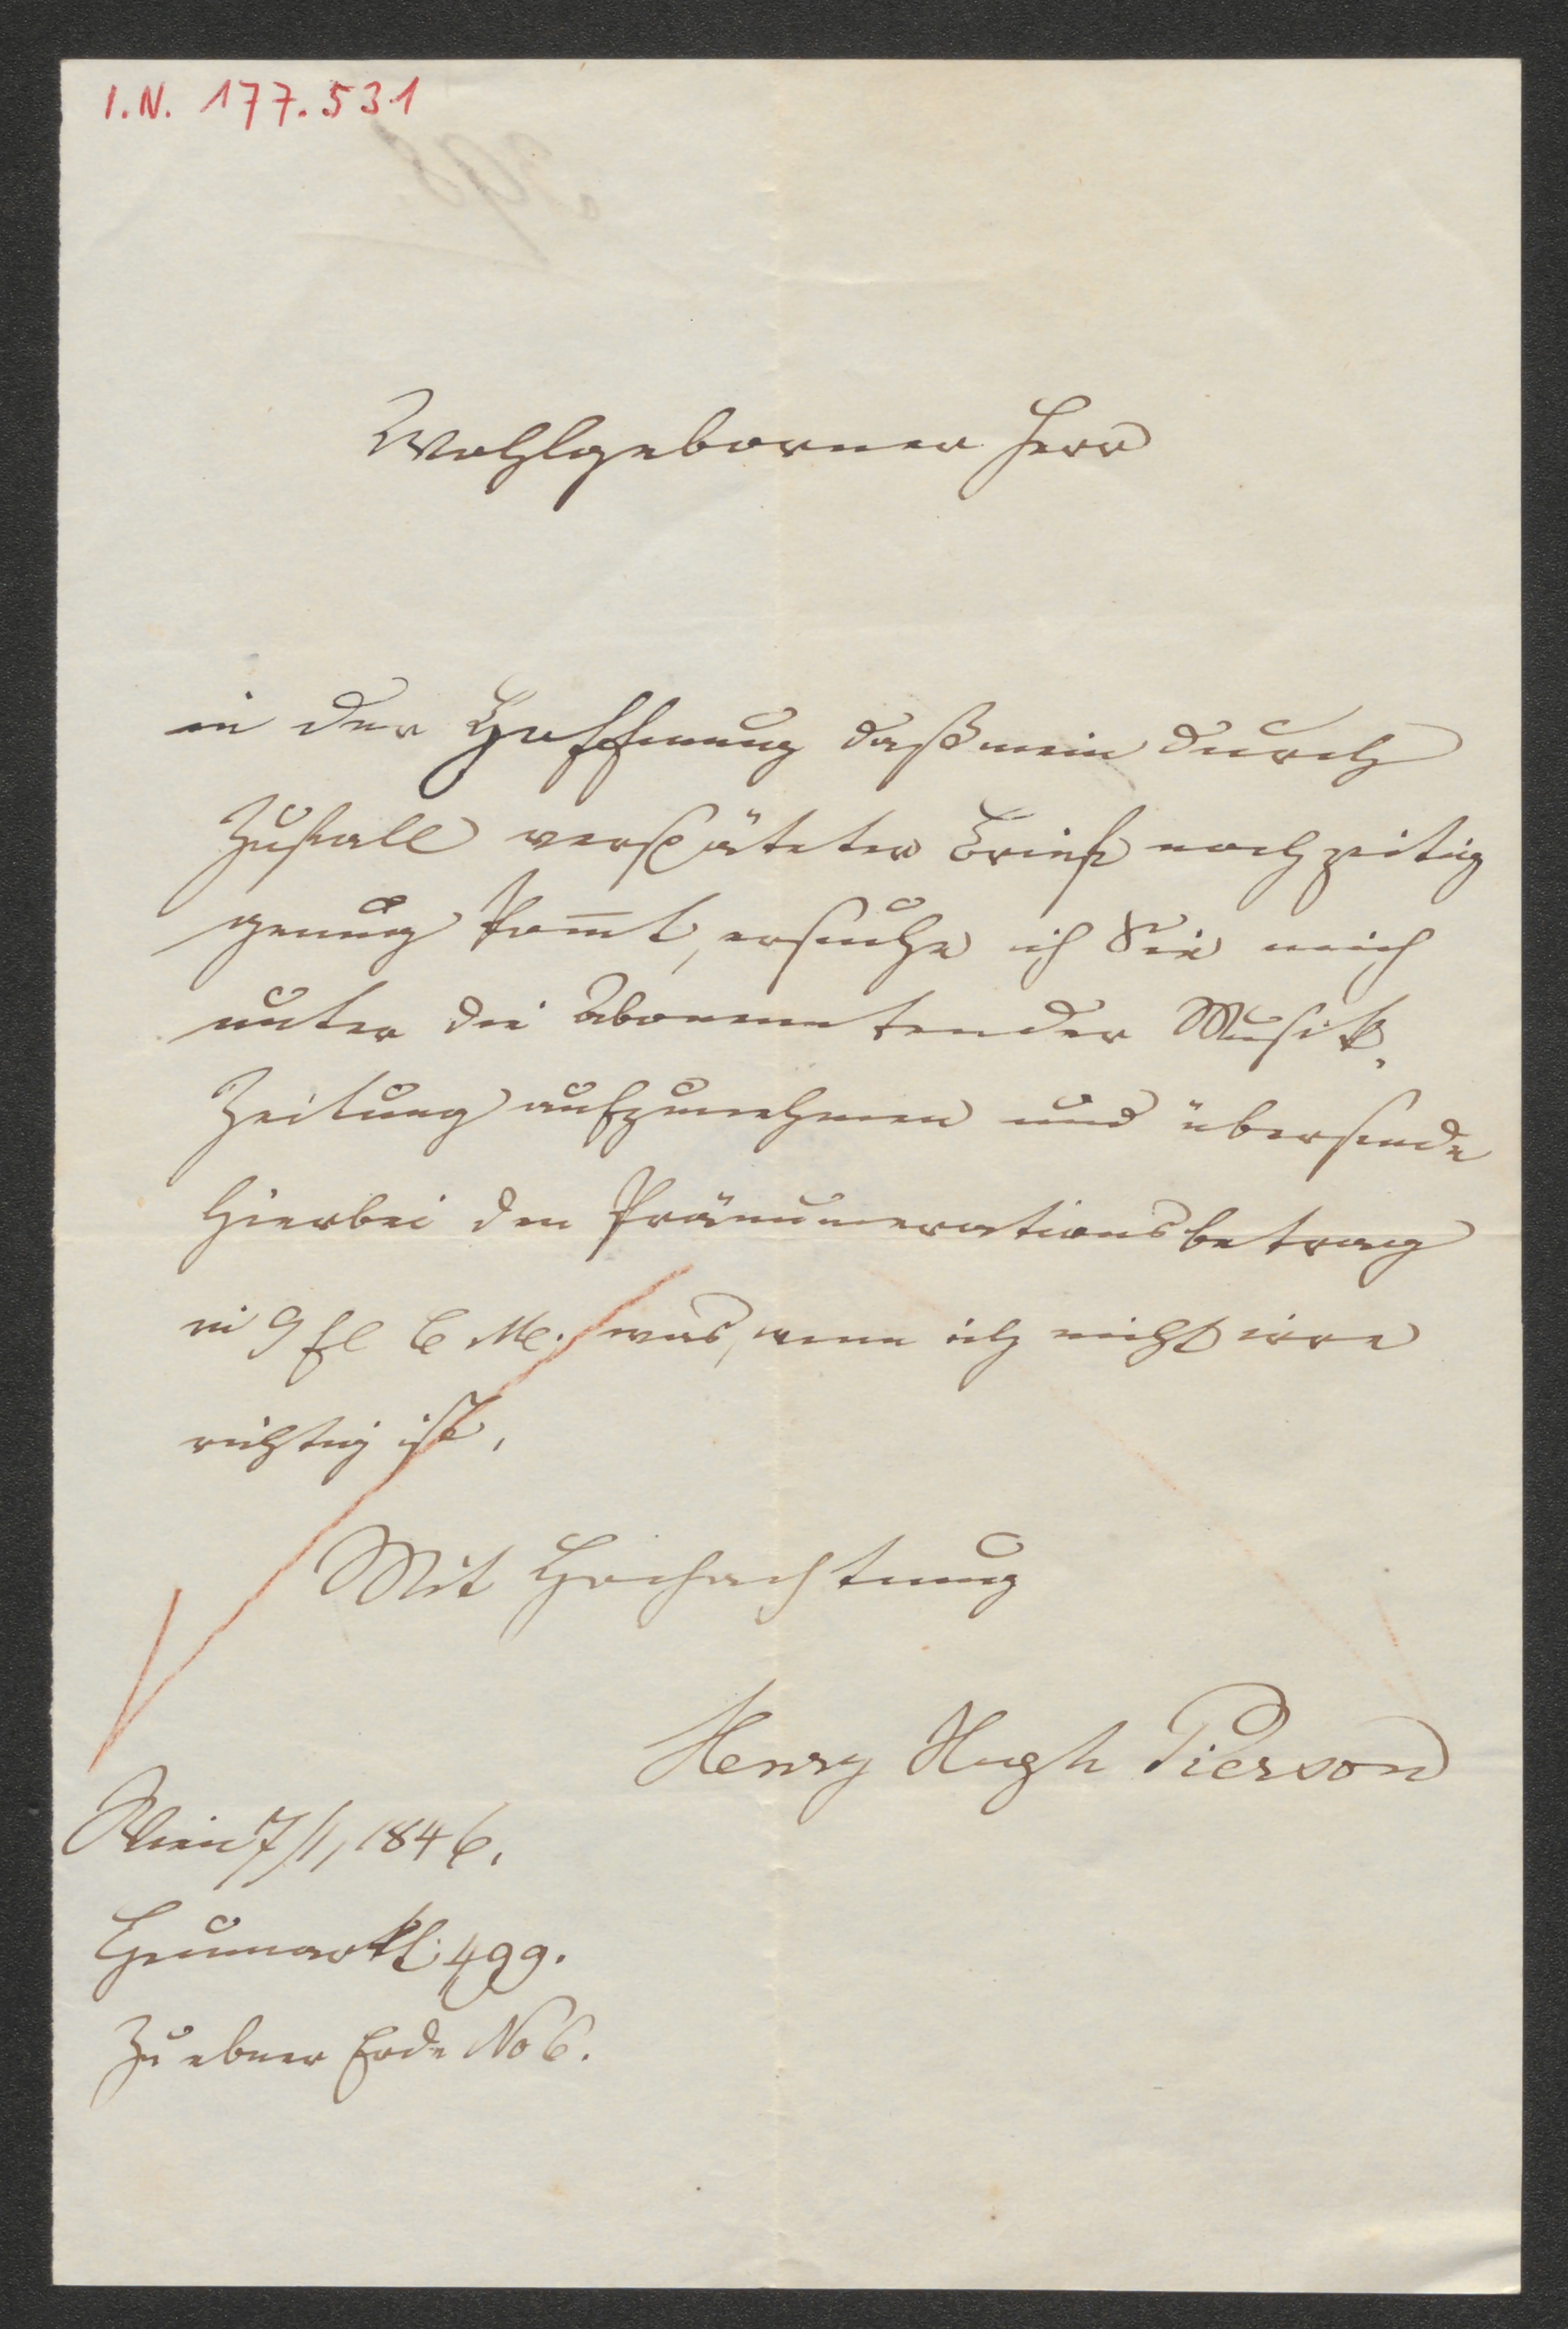 I.N. 177.531
Wohlgeborner Herr
in der Hoffnung daß mein durch
Zufall verspäteter Brief noch zeitig
genug kom̅t, ersuche ich Sie mich
unter die Abonnenten der Musik-
Zeitung aufzunehmen und übersende
hierbei den Pränumerationsbetrag
in 9 fl C M. was, wenn ich nicht irre
richtig ist.
Mit Hochachtung
Henry Hugh Pierson
Wien 7/1, 1846.
Heumarkt 499.
Zu ebner Erde No 6.